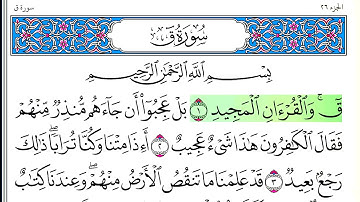 الجزء ٢٦ سورة ق
سُورَةُ قٓ
بِسْمِ ٱللَّهِ ٱلرَّحْمَٰنِ ٱلرَّحِيمِ
قٓ ۚ وَٱلْقُرْءَانِ ٱلْمَجِيدِ ١ بَلْ عَجِبُوٓا۟ أَن جَآءَهُم مُّنذِرٌ مِّنْهُمْ
فَقَالَ ٱلْكَٰفِرُونَ هَٰذَا شَىْءٌ عَجِيبٌ ٢ أَءِذَا مِتْنَا وَكُنَّا تُرَابًا ۖ ذَٰلِكَ
رَجْعٌۢ بَعِيدٌ ٣ قَدْ عَلِمْنَا مَا تَنقُصُ ٱلْأَرْضُ مِنْهُمْ ۖ وَعِندَنَا كِتَٰبٌ